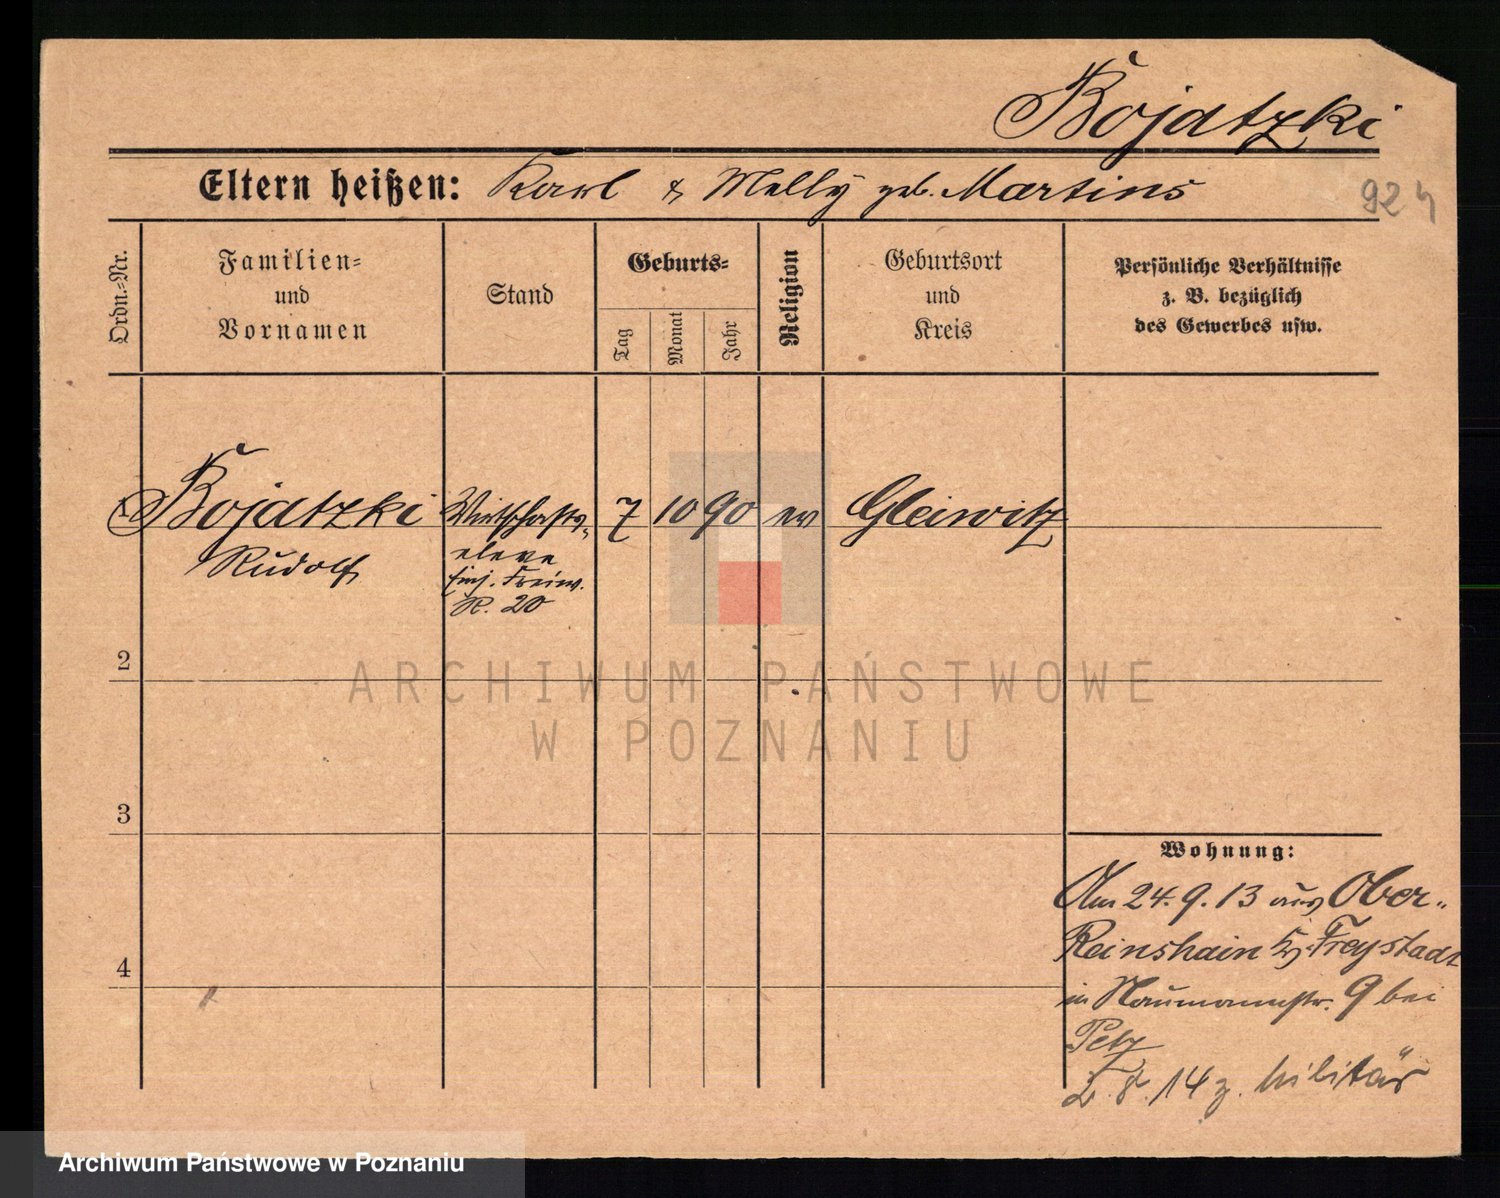 Bojatzki
Eltern heißen: Karl & Melly geb. Martins
924
Ordn.=Nr.
Familien=
und
Vornamen
Stand
Geburts=
Tag
Monat
Jahr
Religion
Geburtsort
und
Kreis
Persönliche Verhältnisse
z. B. bezüglich
des Gewerbes usw.
1 Bojatzki Wirtschafts- 7 10 90 ev Gleiwitz
Rudolf eleve
Einj. Freiw.
R. 20
2
3
4
Wohnung:
Am 24.9.13 aus Ober-
Reinshain Kr. Freystadt
in Naumannstr. 9 bei
Petz
2.8.14 z. Militär
ARCHIWUM PAŃSTWOWE
W POZNANIU
Archiwum Państwowe w Poznaniu